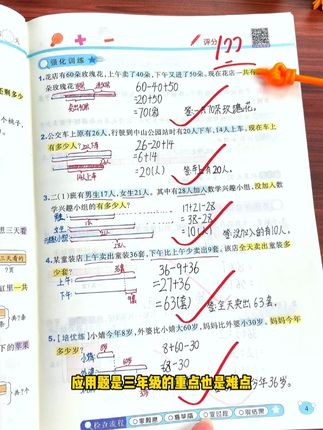 评分
100
强化训练
1.花店有60朵玫瑰花,上午卖了40朵,下午又进了50朵。现在花店一共有
多少朵玫瑰花?
60-40+50
=20+50
=70(朵)
答:一共70朵玫瑰花。
卖出40朵
2.公交车上原有26人,行驶到中山公园站时有20人下车,14人上车,现在车上
有多少人?
26-20+14
=6+14
=20(人)
答:车上有20人。
3.二(1)班有男生17人,女生21人。其中有28人加入数学兴趣小组,没加入数
学兴趣小组的有多少人?
17+21-28
=38-28
=10(人)
答:没加入的有10人。
4.某童装店上午卖出童装36套,下午比上午少卖出9套。该店全天卖出童装多
少套?
36-9+36
=27+36
=63(套)
答:全天卖出63套。
上午
下午
5.【培优练】小婧今年8岁,外婆比小婧大60岁,妈妈比外婆小30岁,妈妈今年
多少岁?
8+60-30
=68-30
今年36岁。
应用题是三年级的重点也是难点
检查流程
4